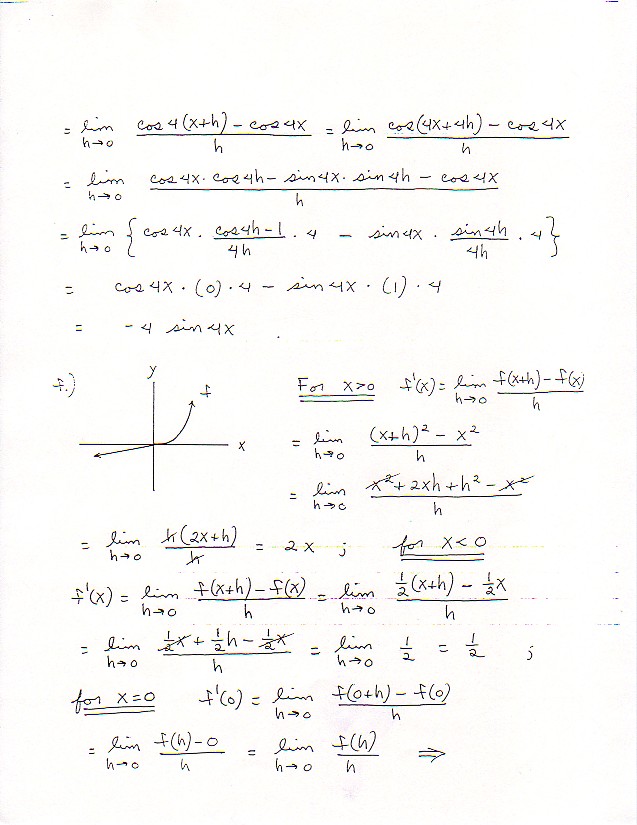 = lim h→0 (cos 4(x+h) - cos 4x)/h = lim h→0 (cos(4x+4h) - cos 4x)/h
= lim h→0 (cos 4x · cos 4h - sin 4x · sin 4h - cos 4x)/h
= lim h→0 { cos 4x · (cos 4h - 1)/4h · 4 - sin 4x · (sin 4h)/4h · 4 }
= cos 4x · (0) · 4 - sin 4x · (1) · 4
= -4 sin 4x
f.) y f x
For x>0 f'(x) = lim h→0 (f(x+h) - f(x))/h
= lim h→0 ((x+h)² - x²)/h
= lim h→0 (x² + 2xh + h² - x²)/h
= lim h→0 h(2x+h)/h = 2x ; for x<0
f'(x) = lim h→0 (f(x+h) - f(x))/h = lim h→0 (½(x+h) - ½x)/h
= lim h→0 (½x + ½h - ½x)/h = lim h→0 ½ = ½ ;
for x=0 f'(0) = lim h→0 (f(0+h) - f(0))/h
= lim h→0 (f(h) - 0)/h = lim h→0 f(h)/h ⇒